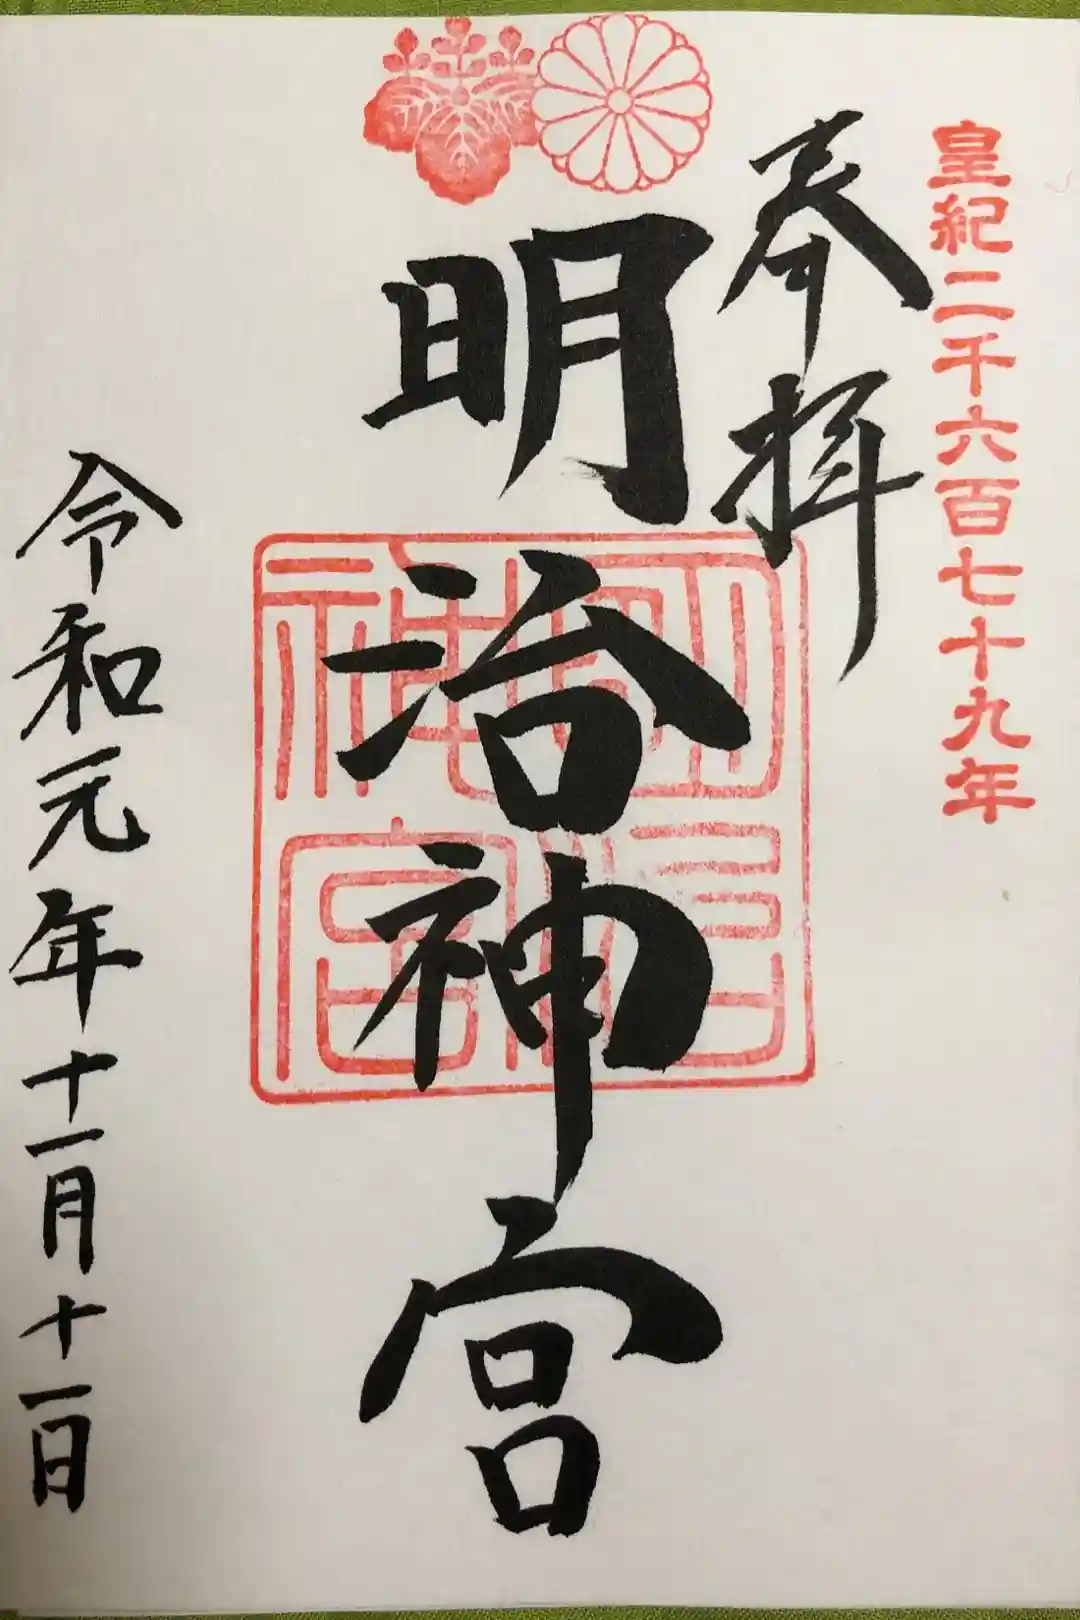 皇紀二千六百七十九年
奉拝
明治神宮
明治神宮
令和元年十一月十一日